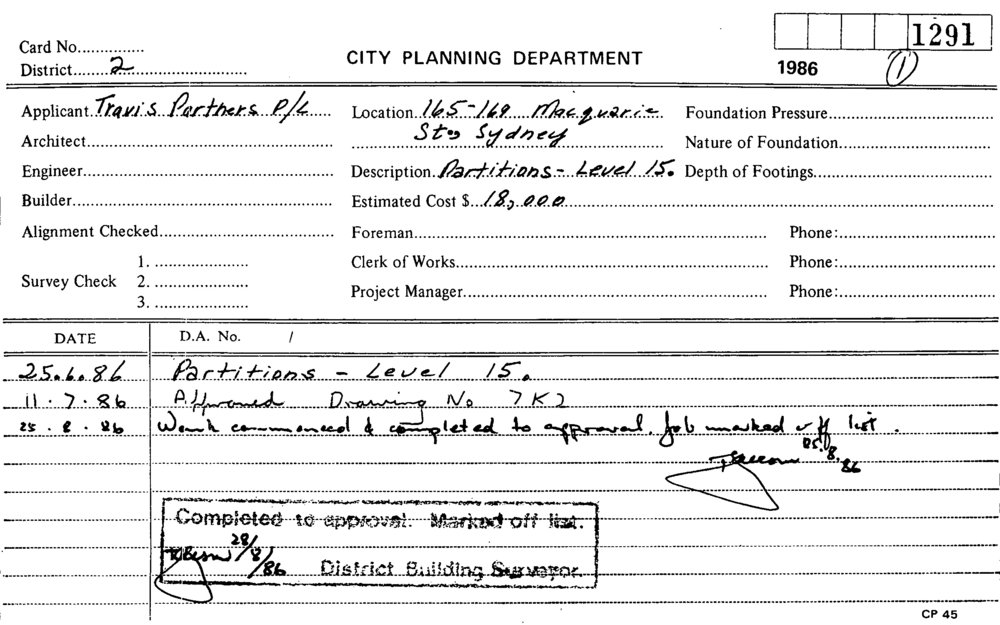 1291
Card No...............
CITY PLANNING DEPARTMENT
District.......2...............
1986 (1)
Applicant Travis Partners P/L
Location 165-169 Macquarie
Foundation Pressure
Architect
St., Sydney
Nature of Foundation
Engineer
Description Partitions - Level 15.
Depth of Footings
Builder
Estimated Cost $ 18,000
Alignment Checked
Foreman
Phone:
Survey Check
1.
2.
3.
Clerk of Works
Phone:
Project Manager
Phone:
DATE
D.A. No. /
25.6.86 Partitions - Level 15.
11.7.86 Approved Drawing No 7K2
25.8.86 Work commenced & completed to approval. Job marked off list.
25.8.86
Completed to approval. Marked off list.
28/8/86
District Building Surveyor
CP 45